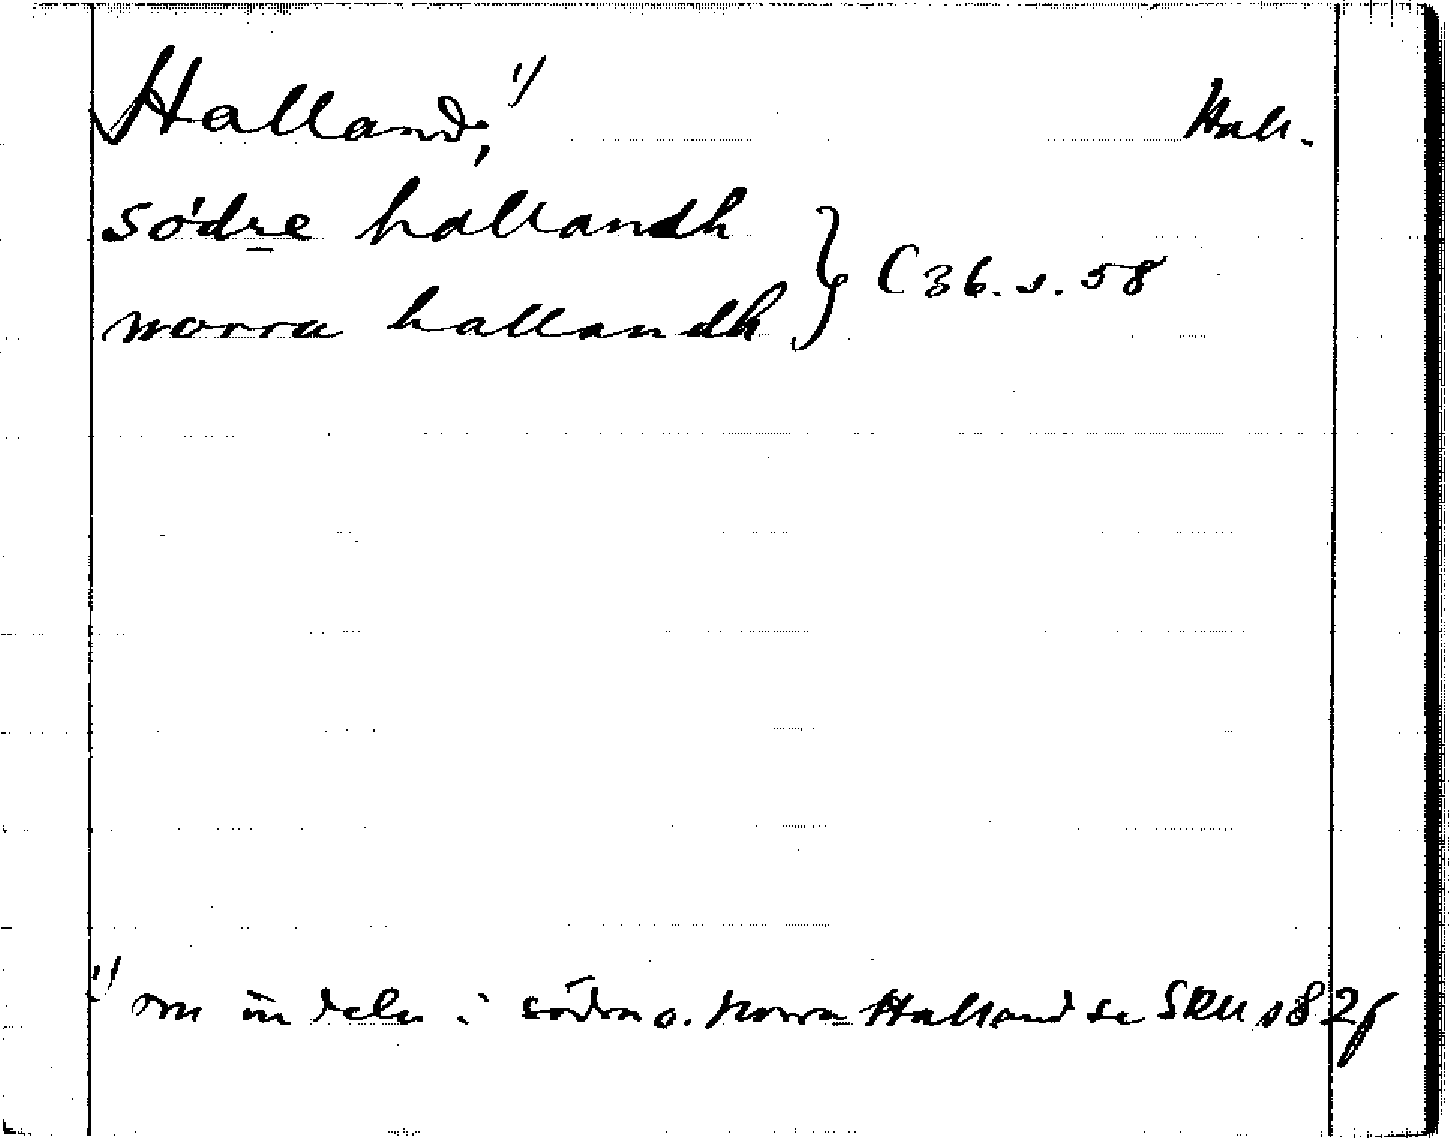 Halland, 1) Hall.
södre hallandh
norra hallandh } C 36. s. 58
1) om indeln i södra o. norra Halland se SRH s 82 f